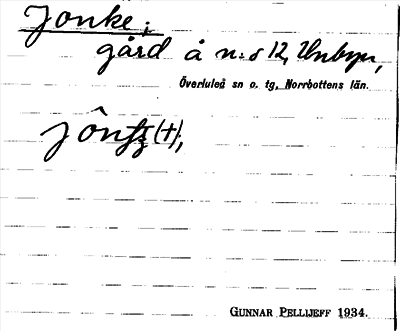 Jonke;
gård å n:o 12, Unbyn,
Överluleå sn o. tg, Norrbottens län.
GUNNAR PELLIJEFF 1934.